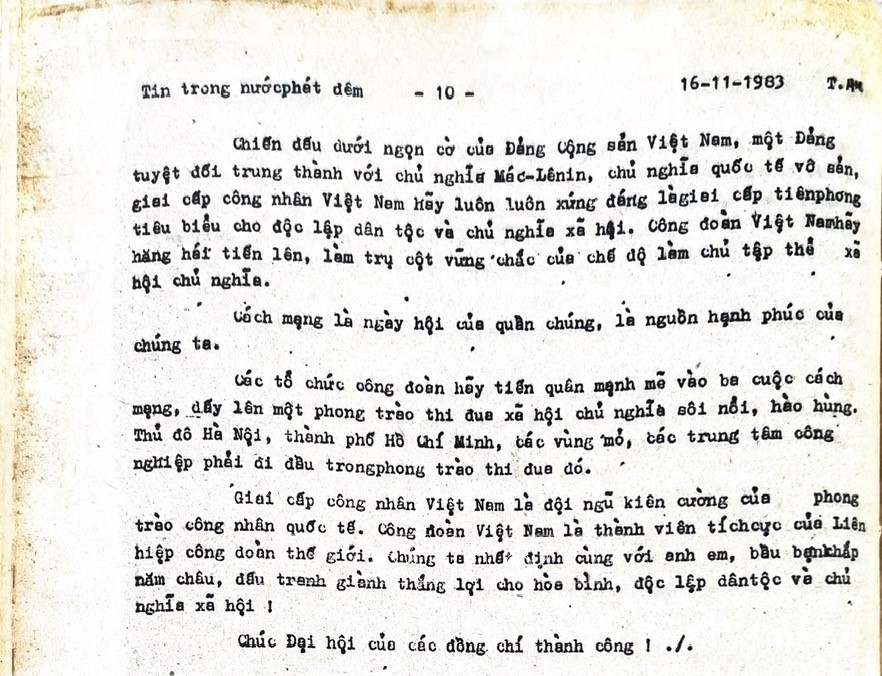 Tin trong nướcphát đêm - 10 - 16-11-1983 T.Au
Chiến đấu dưới ngọn cờ của Đảng Cộng sản Việt Nam, một Đảng
tuyệt đối trung thành với chủ nghĩa Mác-Lênin, chủ nghĩa quốc tế vô sản,
giai cấp công nhân Việt Nam hãy luôn luôn xứng đáng làgiai cấp tiênphong
tiêu biểu cho độc lập dân tộc và chủ nghĩa xã hội. Công đoàn Việt Namhãy
hăng hái tiến lên, làm trụ cột vững chắc của chế độ làm chủ tập thể xã
hội chủ nghĩa.
Cách mạng là ngày hội của quần chúng, là nguồn hạnh phúc của
chúng ta.
Các tổ chức công đoàn hãy tiến quân mạnh mẽ vào ba cuộc cách
mạng, dấy lên một phong trào thi đua xã hội chủ nghĩa sôi nổi, hào hùng.
Thủ đô Hà Nội, thành phố Hồ Chí Minh, các vùng mỏ, các trung tâm công
nghiệp phải đi đầu trongphong trào thi đua đó.
Giai cấp công nhân Việt Nam là đội ngũ kiên cường của phong
trào công nhân quốc tế. Công đoàn Việt Nam là thành viên tíchcực của Liên
hiệp công đoàn thế giới. Chúng ta nhất định cùng với anh em, bầu bạnkhắp
năm châu, đấu tranh giành thắng lợi cho hòa bình, độc lập dântộc và chủ
nghĩa xã hội !
Chúc Đại hội của các đồng chí thành công ! ./.